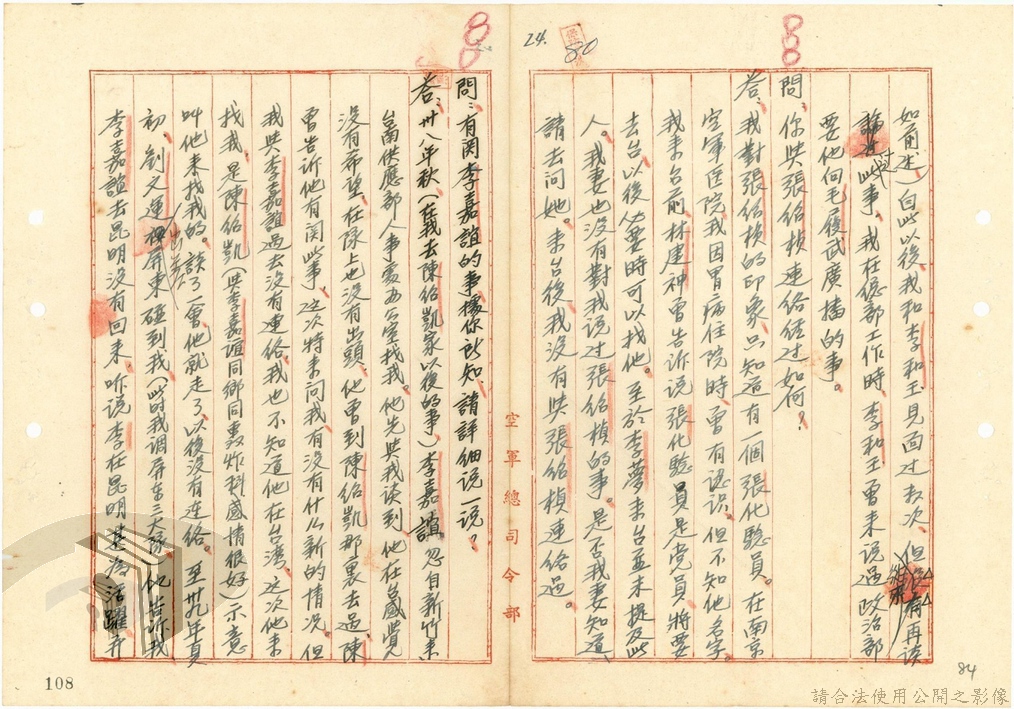 24.
80
88
如前述）自此以後，我和李和玉見面过 次，但 有再谈
此事，我在總部工作時，李和玉曾来说過政治部
要他向毛履武廣播的事。
問：你與張紹楨連絡経过如何？
答：我對張紹楨的印象，只知道有一個張化驗員。在南京
空軍医院，我因胃病住院時，曾有認识，但不知他名字。
我来台前，林建神曾告诉说張化驗員是党員，將要
去台，以後必要時可以找他。至於李夢来台並未提及此
人。我妻也没有對我说过張紹楨的事。是否我妻知道，
請去问她。来台後，我没有與張紹楨連絡過。
84
空軍總司令部
88
問：有関李嘉誼的事，據你所知，請詳細说一说？
答：卅八年秋（在我去陳紹凱家以後的事），李嘉誼忽自新竹来
台南供應部人事處办公室找我。他先與我谈到，他在台感覺
没有希望，在隊上也没有出頭，他曾到陳紹凱那裏去過，陳
曾告诉他有関些事，这次特来问我有没有什么新的情况。但
我與李嘉誼過去没有連絡，我也不知道他在台湾。这次他来
找我，是陳紹凱（與李嘉誼同鄉同轟炸科，感情很好）示意
叫他来找我的。談了一會，他就走了，以後没有连络。至卅九年夏
初，劉文運 屏東碰到我（此时我调屏東三大隊），他告诉我
李嘉誼去昆明没有回来。听说李在昆明甚為活躍，并
108
請合法使用公開之影像